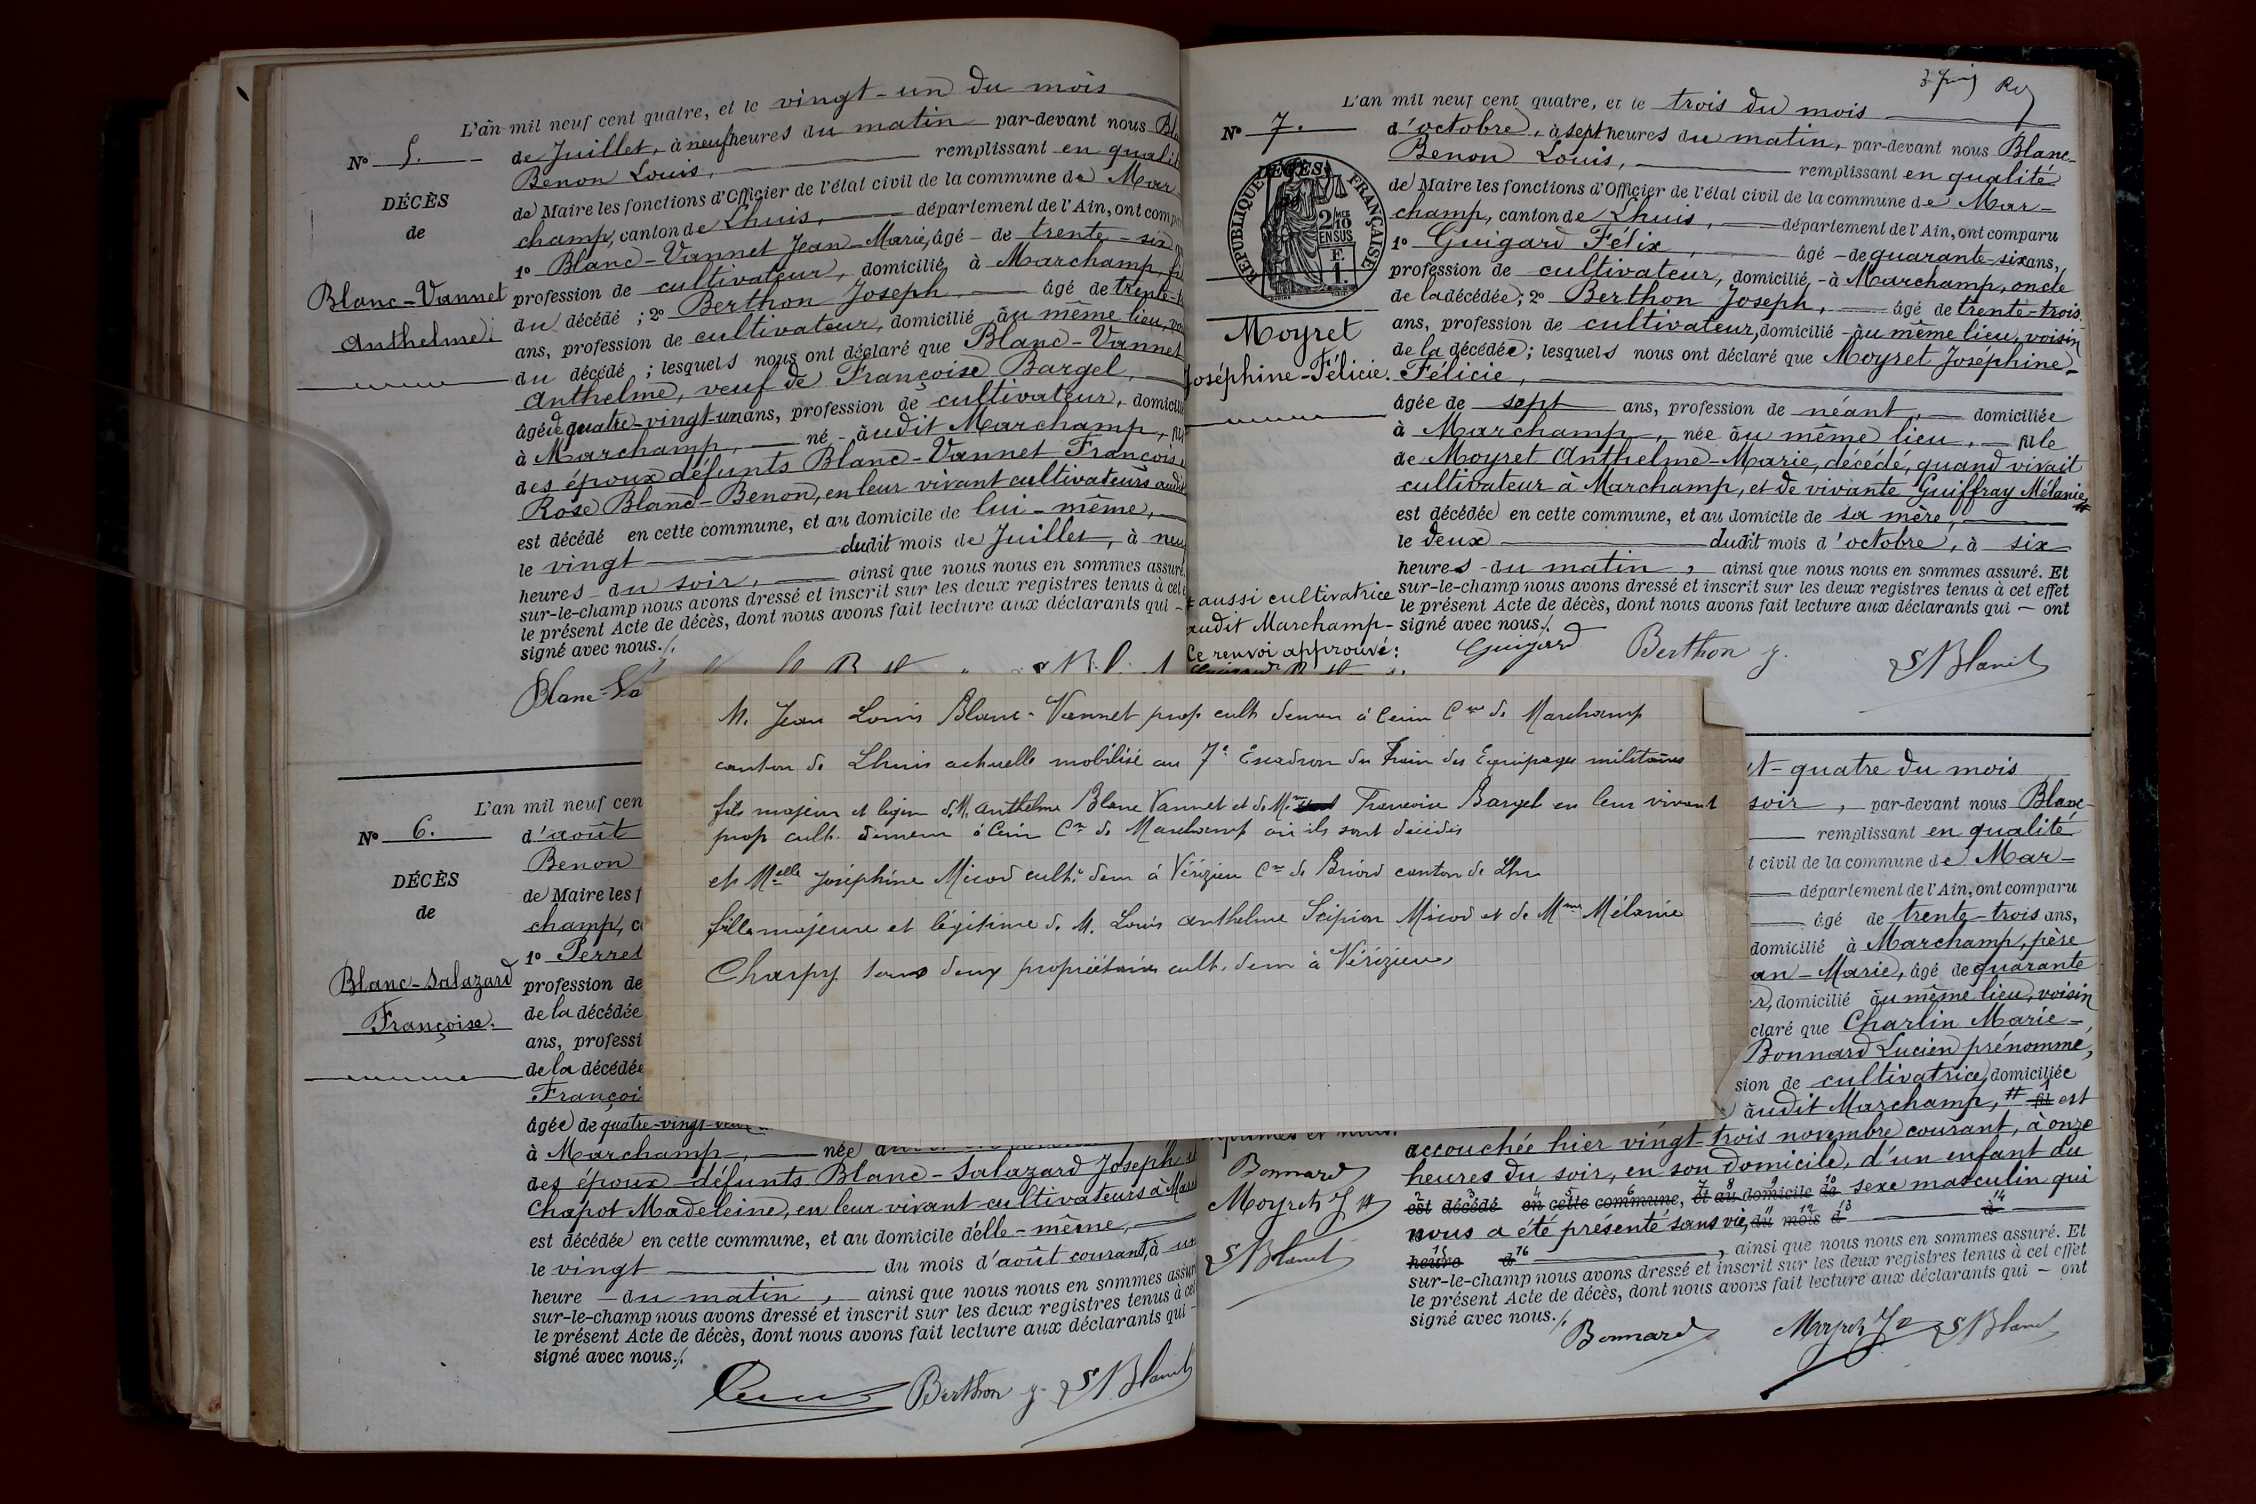 L'an mil neuf cent quatre, et le vingt-un du mois
N° 5.
de Juillet, à neuf heures du matin par-devant nous
Benon Louis, remplissant en qualité
DÉCÈS
de Maire les fonctions d'Officier de l'état civil de la commune de Mar-
de
champ, canton de Lhuis, département de l'Ain, ont
1° Blanc-Vannet Jean-Marie, âgé de trente-six
Blanc-Vannet
profession de cultivateur, domicilié à Marchamp,
Anthelme.
du décédé ; 2° Berthon Joseph, âgé de
ans, profession de cultivateur, domicilié au même lieu,
du décédé ; lesquels nous ont déclaré que Blanc-Vannet
Anthelme, veuf de Françoise Bargel,
âgé de quatre-vingt-un ans, profession de cultivateur,
à Marchamp, né audit Marchamp,
des époux défunts Blanc-Vannet François
Rose Blanc-Benon, en leur vivant cultivateurs
est décédé en cette commune, et au domicile de lui-même,
le vingt dudit mois de Juillet, à
heures du soir, ainsi que nous nous en sommes assuré.
sur-le-champ nous avons dressé et inscrit sur les deux registres tenus à
le présent Acte de décès, dont nous avons fait lecture aux déclarants qui
signé avec nous.
L'an mil neuf
N° 6.
d'août
Benon
DÉCÈS
de Maire les
de
champ,
1° Perret
Blanc-Salazard
profession de
Françoise.
de la décédée
ans,
de la
âgée de
à Marchamp, née
des époux défunts Blanc-Salazard Joseph
Chapot Madeleine, en leur vivant cultivateurs à
est décédée en cette commune, et au domicile d'elle-même,
le vingt du mois d'août courant, à
heure du matin, ainsi que nous nous en sommes
sur-le-champ nous avons dressé et inscrit sur les deux registres tenus à
le présent Acte de décès, dont nous avons fait lecture aux déclarants qui
signé avec nous.
Berthon J.
M. Jean Louis Blanc-Vannet prop cult demeu à Cerin Cne de Marchamp
canton de Lhuis actuelle mobilisé au 7e Escadron du Train des Equipages militaires
fils majeur et légm d. M. Anthelme Blanc Vannet et de Mme Francoise Bargel en leur vivant
prop cult. demeu à Cerin Cne de Marchamp où ils sont décédés
et Melle Joséphine Micod culte dem à Vérizieu Cne de Briord canton de Lhu
fille majeure et légitime de M. Louis Anthelme Scipion Micod et de Mme Mélanie
Charpy tous deux propriétaires cult. dem à Vérizieu.
L'an mil neuf cent quatre, et le trois du mois
N° 7.
d'octobre, à sept heures du matin, par-devant nous Blanc-
Benon Louis, remplissant en qualité
de Maire les fonctions d'Officier de l'état civil de la commune de Mar-
champ, canton de Lhuis, département de l'Ain, ont comparu
DÉCÈS
RÉPUBLIQUE FRANÇAISE
2/10
EN SUS
1° Guigard Félix, âgé de quarante-six ans,
profession de cultivateur, domicilié à Marchamp, oncle
de la décédée ; 2° Berthon Joseph, âgé de trente-trois
Moyret
ans, profession de cultivateur, domicilié au même lieu, voisin
de la décédée ; lesquels nous ont déclaré que Moyret Joséphine-
Joséphine-Félicie.
Félicie,
âgée de sept ans, profession de néant, domiciliée
à Marchamp, née au même lieu, fille
de Moyret Anthelme-Marie, décédé, quand vivait
cultivateur à Marchamp, et de vivante Guiffray Mélanie #
est décédée en cette commune, et au domicile de sa mère,
le deux dudit mois d'octobre, à six
heures du matin, ainsi que nous nous en sommes assuré. Et
sur-le-champ nous avons dressé et inscrit sur les deux registres tenus à cet effet
le présent Acte de décès, dont nous avons fait lecture aux déclarants qui ont
signé avec nous.
# aussi cultivatrice
audit Marchamp-
Ce renvoi approuvé :
Guigard Berthon J.
-quatre du mois
soir, par-devant nous Blanc-
remplissant en qualité
civil de la commune de Mar-
département de l'Ain, ont comparu
âgé de trente-trois ans,
domicilié à Marchamp, père
-Marie, âgé de quarante
domicilié au même lieu, voisin
que Charlin Marie-
Bonnard Lucien prénommé,
de cultivatrice, domiciliée
audit Marchamp, # fil est
accouchée hier vingt-trois novembre courant, à onze
heures du soir, en son domicile, d'un enfant du
est décédé en cette commune, et au domicile de sexe masculin qui
nous a été présenté sans vie, du mois d à
heure d , ainsi que nous nous en sommes assuré. Et
sur-le-champ nous avons dressé et inscrit sur les deux registres tenus à cet effet
le présent Acte de décès, dont nous avons fait lecture aux déclarants qui ont
signé avec nous.
Bonnard
Moyret J
Bonnard